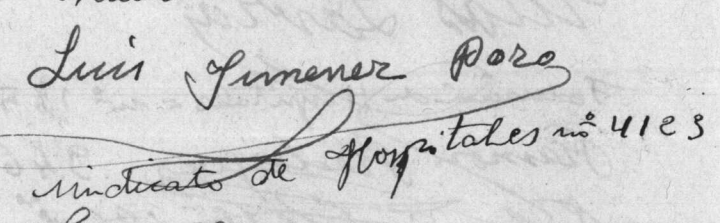 Luis Jimenez Pozo
sindicato de Hospitales nº 4123